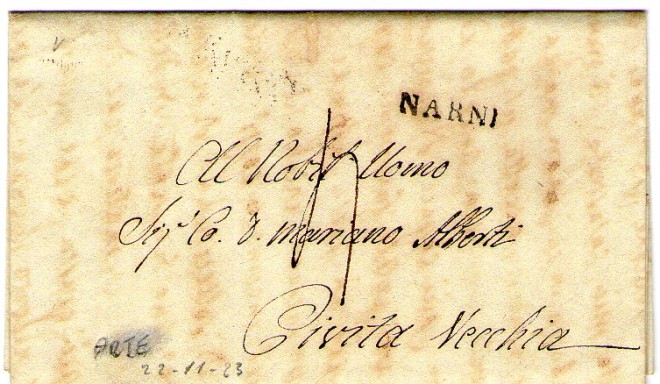 NARNI
All Nobil Uomo
Sigr Co. D. Mariano Alberti
Civita Vecchia
ARTE
22-11-23